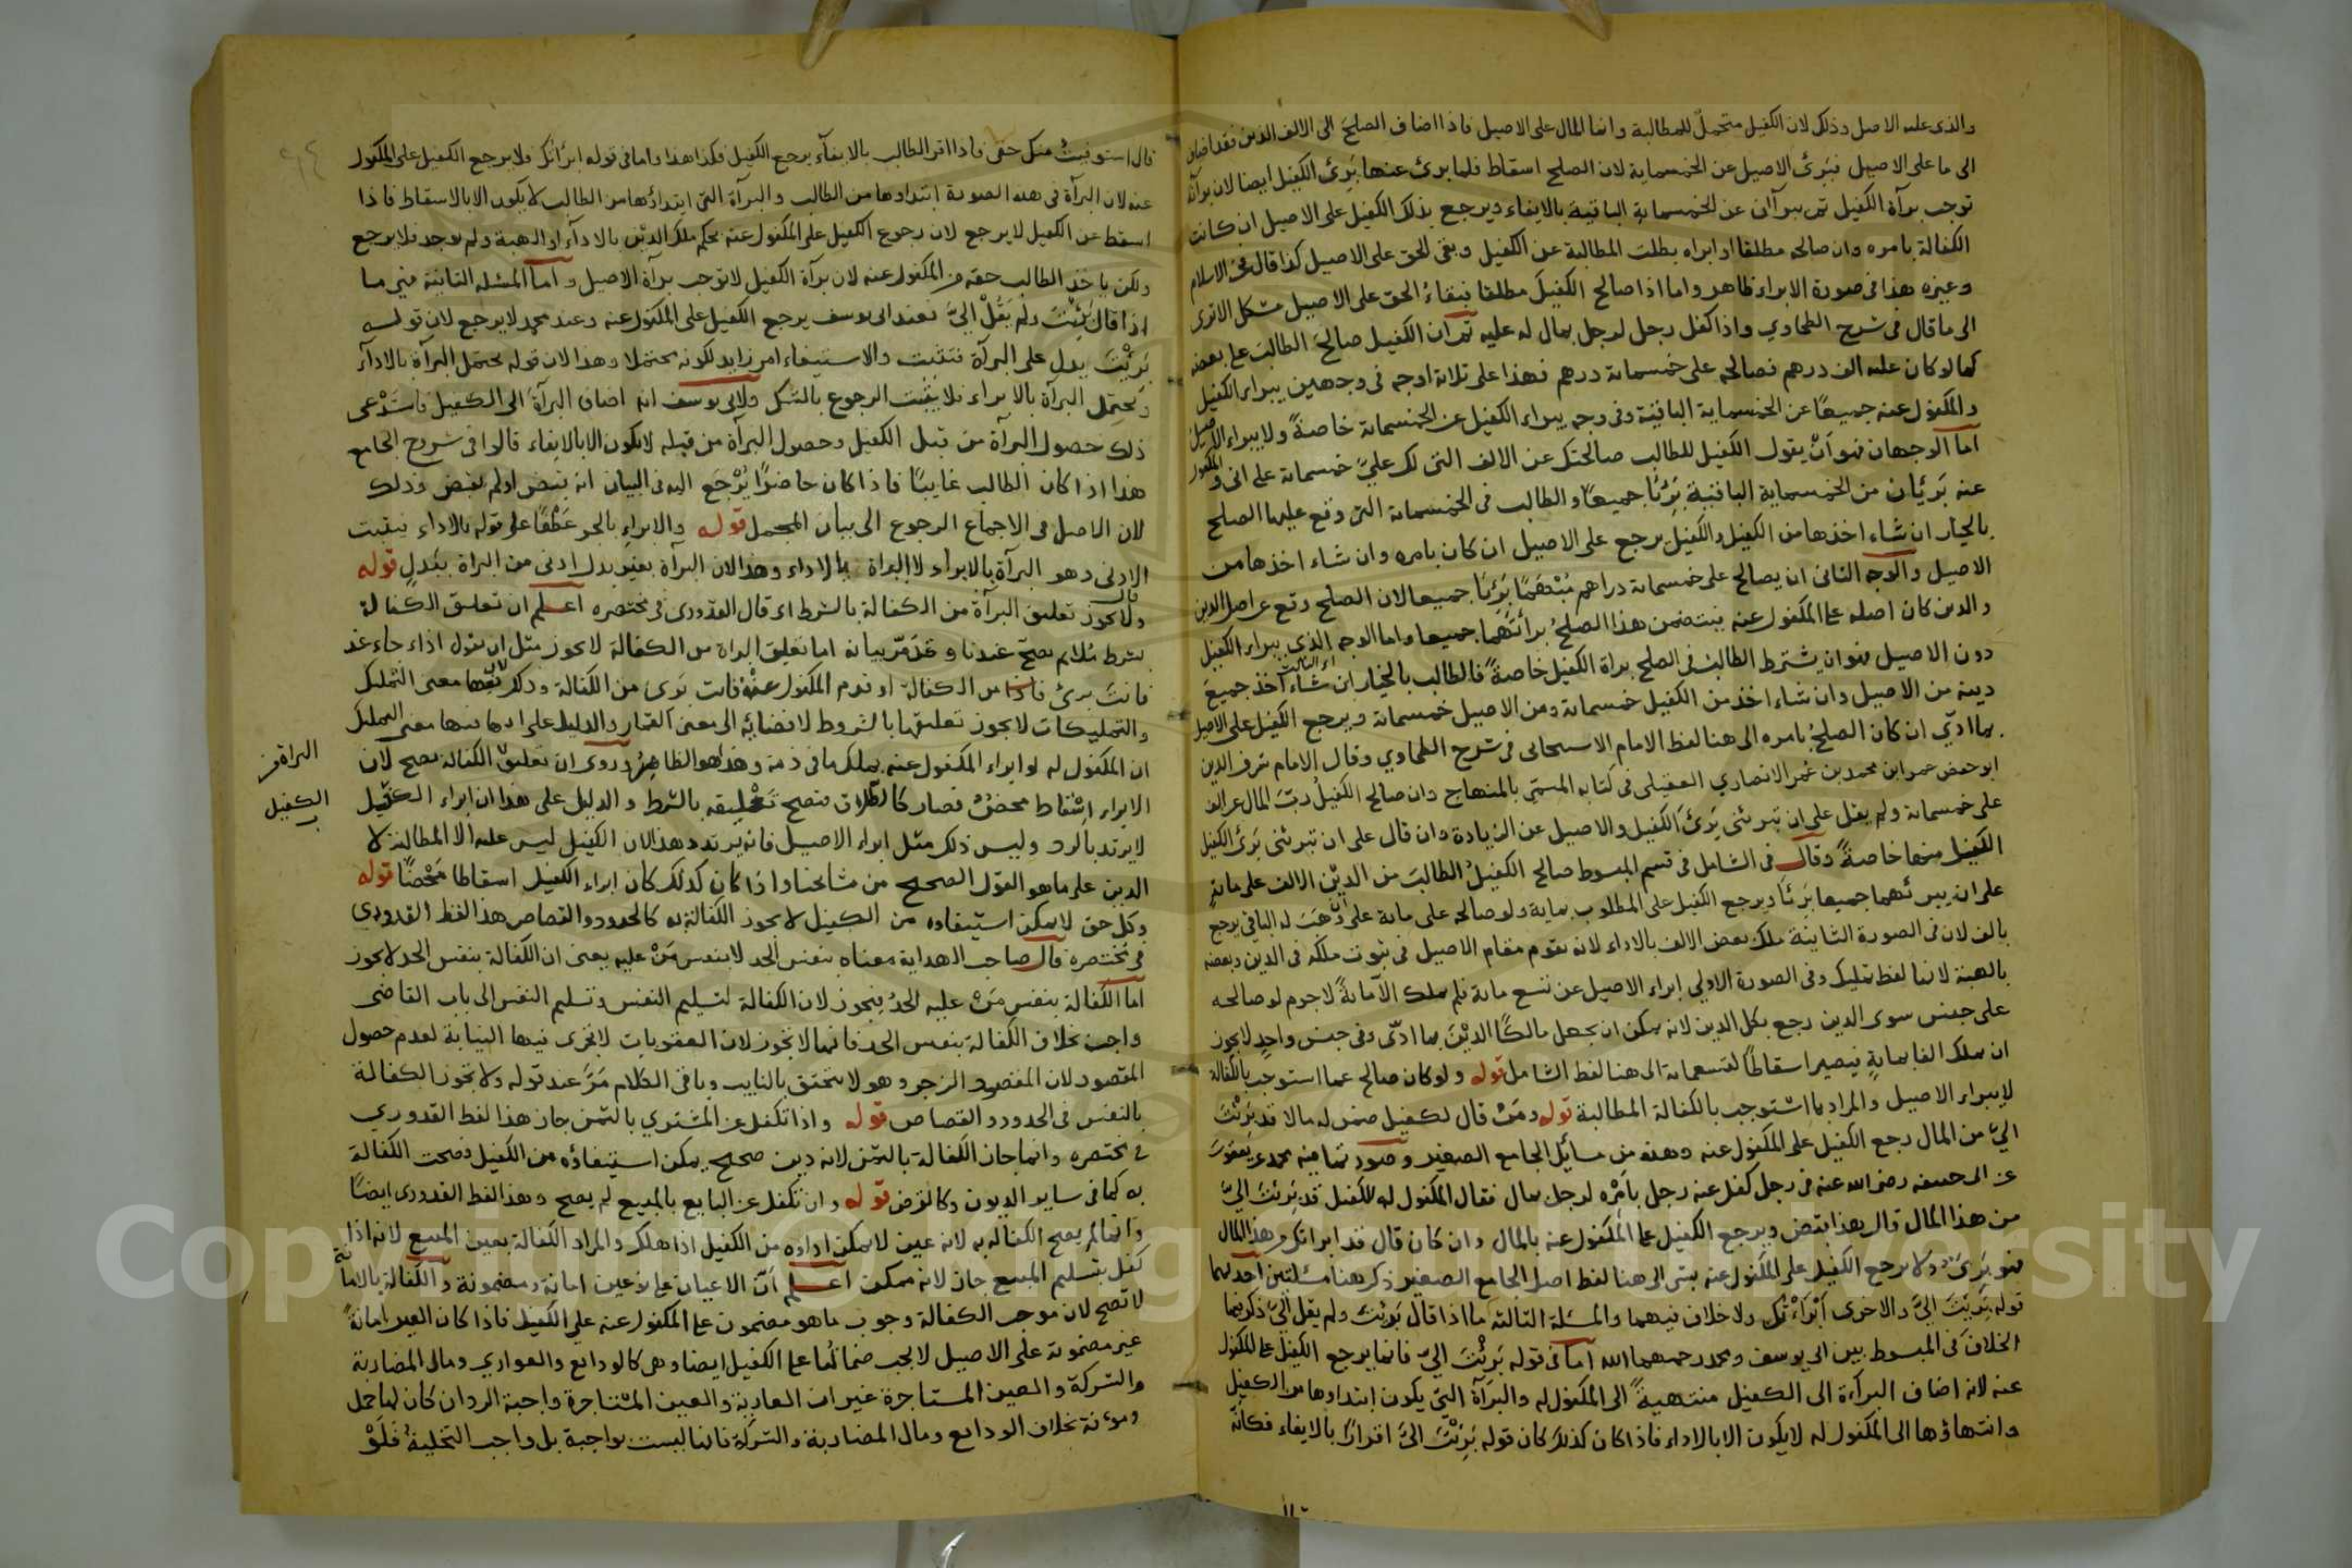 والذى عليه الاصيل وذلك لان الكفيل متحمل للمطالبة وانما المال على الاصيل فاذا اضاف الصلح الى الالف الدين فقد اضاف
الى ما على الاصيل فبَرِئَ الاصيل عن الخمسماية لان الصلح اسقاط فلما برئ عنها بَرِئَ الكفيل ايضا لان برآته
توجب برآة الكفيل ثم يبرآن عن الخمسماية الباقية بالايفاء ويرجع بذلك الكفيل على الاصيل ان كانت
الكفالة بامره وان صالحه مطلقا او ابراه بطلت المطالبة عن الكفيل وبقى الحق على الاصيل كذا قال فخر الاسلام
وغيره هذا فى صورة الابراء ظاهر واما اذا صالح الكفيلَ مطلقا فبقاءُ الحق على الاصيل مشكل الا ترى
الى ما قال فى شرح الطحاوي واذا كفل رجل لرجل بمال له عليه ثم ان الكفيل صالحَ الطالبَ على بعضه
كما لو كان عليه الف درهم فصالحه على خمسماية درهم فهذا على ثلاثة اوجه فى وجهين يبراء الكفيل
والمكفول عنه جميعًا عن الخمسماية الباقية وفى وجه يبراء الكفيل عن الخمسماية خاصةً ولا يبراء الاصيل
اما الوجهان فهو اَنْ يقول الكفيل للطالب صالحتك عن الالف التى لك عليَّ خمسماية على انى والمكفول
عنه بَرئيان من الخمسماية الباقية بَرِئَا جميعًا والطالب فى الخمسماية التى وقع عليها الصلح
بالخيار ان شاء اخذها من الكفيل والكفيل يرجع على الاصيل ان كان بامره وان شاء اخذها من
الاصيل والوجه الثانى ان يصالح على خمسماية دراهم مُبْهَمًا بَرِئَا جميعا لان الصلح وقع عن اصل الدين
والدين كان اصله على المكفول عنه فيتضمن هذا الصلحُ برأتَهُما جميعا واما الوجه الذي يبراء الكفيل
دون الاصيل فهو ان يشترط الطالب فى الصلح براة الكفيل خاصةً فالطالب بالخيار ان شاء اخذ جميع
دينه من الاصيل وان شاء اخذ من الكفيل خمسماية ومن الاصيل خمسماية ويرجع الكفيل على الاصيل
بما ادّي ان كان الصلحُ بامره الى هنا لفظ الامام الاسبيجابى فى شرح الطحاوي وقال الامام شرف الدين
ابو حفص عمر ابن محمد بن عُمر الانصاري العقيلى فى كتابه المسمّي بالمنهاج وان صالح الكفيلُ ربَّ المال عن الف
على خمسماية ولم يقل على ان تبرئنى بَرِئَ الكفيل والاصيل عن الزيادة وان قال على ان تبرئنى بَرِئَ الكفيل
الكفيل منها خاصةً وقال فى الشامل فى قسم المبسوط صالح الكفيلُ الطالبَ من الدَيْنِ الالف على مائةٍ
على ان يبرئهما جميعا بَرِئَا ويرجع الكفيل على المطلوب بماية ولو صالحه على ماية على اَنْ وَهَبَ له الباقى يرجع
بالف لان فى الصورة الثانية ملك بعض الالف بالاداء لانه يقوم مقام الاصيل فى ثبوت ملكه فى الدين وبعضه
بالهبة لانها لفظ تمليك وفى الصورة الاولى ابراء الاصيل عن تسع ماية فلم يملك الا مايةً لا جرم لو صالحه
على جنس سوى الدين رجع بكل الدين لانه يمكن ان يجعل مالكًا الدَيْنَ بما ادّى وفى جنس واحدٍ لا يجوز
ان يملك الفا بمايةٍ فيصير اسقاطًا لتسعماية الى هنا لفظ الشامل قوله ولو كان صالح عما استوجب بالكفالة
لا يبراء الاصيل والمراد بما اسْتوجب بالكفالة المطالبة قوله ومَنْ قال لكفيل ضمن له مالا قد بَرِئْتَ
اليَّ من المال رجع الكفيل على المكفول عنه وهذه من مسائل الجامع الصغير وصورتها فيه محمد عن يعقوب
عن ابى حنيفه رضى الله عنه فى رجل كفل عنه رجل بامْرِه لرجل بمال فقال المكفول له للكفيل قد بَرِئتَ اليَّ
من هذا المال قال هذا بقبض ويرجع الكفيل على المكفول عنه بالمال وان كان قال قد ابراتك من هذا المال
فهو بَرِئٌ ولا يرجع الكفيل على المكفول عنه بشى الى هنا لفظ اصل الجامع الصغير ذكر هنا مسئلتين احديهما
قوله بَرِئْتَ اليَّ والاخرى أَبْرَأْتُكَ ولا خلاف فيهما والمسئلة الثالثة ما اذا قال بَرِئتَ ولم يقل اليَّ ذكر فيها
الخلافَ فى المبسوط بين ابى يوسف ومحمد رحمهما الله اما فى قوله بَرِئْتَ اليَّ فانما يرجع الكفيل على المكفول
عنه لانه اضاف البراءة الى الكفيل منتهيةً الى المكفول له والبرآة التى يكون ابتداوها من الكفيل
وانتهاؤها الى المكفول له لا يكون الا بالاداء فاذا كان كذلك كان قوله بَرِئْتَ اليَّ اقرارًا بالايفاء فكانّه
قال استوفيتُ منك حقى فاذا اقر الطالب بالايفاء يرجع الكفيل فكذا هذا واما فى قوله ابرأتك ولا يرجع الكفيل على المكفول
عنه لان البرآة فى هذه الصورة ابتداوها من الطالب والبرآة التى ابتداؤها من الطالب لا يكون الا بالاسقاط فاذا
اسقط عن الكفيل لا يرجع لان رجوع الكفيل على المكفول عنه بحكم ملك الدَيْنِ بالاداء او الهبة ولم يوجد فلا يرجع
ولكن ياخذ الطالب حقه من المكفول عنه لان برآة الكفيل لا توجب برآة الاصيل واما المسئلة الثانية فهى ما
اذا قال بَرِئْتَ ولم يَقُلْ اليَّ فعند ابى يوسف يرجع الكفيل على المكفول عنه وعند محمد لا يرجع لان قوله
بَرِئْتَ يدل على البرآة فتثبت والاستيفاء امر زايد لكونه محتملا وهذا لان قوله يحتمل البرآة بالاداء
ويحتمل البرآة بالابراء فلا يثبت الرجوع بالشك ولابى يوسف انه اضاف البرآةَ الى الكفيل فاسْتَدْعى
ذلك حصول البرآة من قبل الكفيل وحصول البرآة من قبله لا يكون الا بالايفاء قالوا فى شروح الجامع
هذا اذا كان الطالب غايبًا فاذا كان حاضرًا يُرْجَع اليه فى البيان انه قبض او لم يقبض وذلك
لان الاصل فى الاجماع الرجوع الى بيان المجمل قوله والابراءِ بالجر عَطْفًا على قوله بالاداء فيثبت
الادنى وهو البرآة بالابراء لا البراة بالاداء وهذا لان البرآة بغير بدل ادنى من البراة ببدلٍ قوله
قال
ولا يجوز تعليق البرآة من الكفالة بالشرط اى قال القدورى فى مختصره اعلم ان تعليق الكفالة
بشرط مُلايم يصحّ عندنا وقَدْ مَرّ بيانه اما تعليق البراة من الكفالة لا يجوز مثل ان يقول اذا جاء غد
فانتَ برئ من الكفالة او قدم المكفول عنْهُ فانت بَرئ من الكفالة وذلك لانها معنى التمليك
والتمليكات لا يجوز تعليقها بالشروط لافضائه الى معنى القمار والدليل على ان فيها معنى التمليك
ان المكفول له لو ابراء المكفول عنه يملك ما فى ذمته وهذا هو الظاهِرُ وروى ان تعليق الكفالة يصح لان
الابراء اِسْقاط محضٌ فصار كالطلاق فيصح تَعْليقه بالشرط والدليل على هذا ان ابراء الكفيل
لا يرتد بالرد وليس ذلك مثل ابراء الاصيل فانه يرتد وهذا لان الكفيل ليس عليه الا المطالبة لا
الدين على ما هو القول الصحيح من مشايخنا واذا كان كذلك كان ابراء الكفيل اسقاطا مَحْضًا قوله
وكل حق لا يمكن استيفاوه من الكفيل لا يجوز الكفالة به كالحدود والقصاص هذا لفظ القدوري
فى مُختصره قال صاحب الهداية معناه بنفس الحد لا بنفس مَنْ عليه يعنى ان الكفالة بنفس الحد لا يجوز
اما الكفالة بنفس مَنْ عليه الحدُ فيجوز لان الكفالة لتسليم النفس وتسليم النفس الى باب القاضى
واجب بخلاف الكفالة بنفس الحد فانها لا تجوز لان العقوبات لا تجرى فيها النيابة لعدم حصول
المقصود لان المقصود الزجر وهو لا يتحقق بالنايب وباقى الكلام مَرّ عند قوله ولا تجوز الكفالة
بالنفس فى الحدود والقصاص قوله واذا تكفل عن المشتري بالثمن جاز هذا لفظ القدوري
فى مختصره وانما جاز الكفالة بالثمن لانه دين صحيح يمكن استيفاؤه من الكفيل فصحت الكفالة
به كما فى ساير الديون وكالقرض قوله وان تكفل عن البايع بالمبيع لم يصح وهذا لفظ القدورى ايضًا
وانما لم يصح الكفالة به لانه عين لا يمكن اداوه من الكفيل اذا هلك والمراد الكفالة بعين المبيع لانه اذا
كفل بتسليم المبيع جاز لانه ممكن اعلم اَنّ الاعيان على نوعين امانة ومضمونة والكفالة بالامانة
لا تصح لان موجب الكفالة وجوب ما هو مضمون على المكفول عنه على الكفيل فاذا كان العين امانةً
غير مضمونة على الاصيل لا يجب ضمانُها على الكفيل ايضا وهى كالودايع والعواري ومال المضاربة
والشركة والعين المستاجرة غير ان العارية والعين المستاجرة واجبة الرد ان كان لها حمل
ومؤنة بخلاف الودايع ومال المضاربة والشركة فانها ليست بواجبة بل واجب التخلية فَلَوْ
البراة من
الكفيل